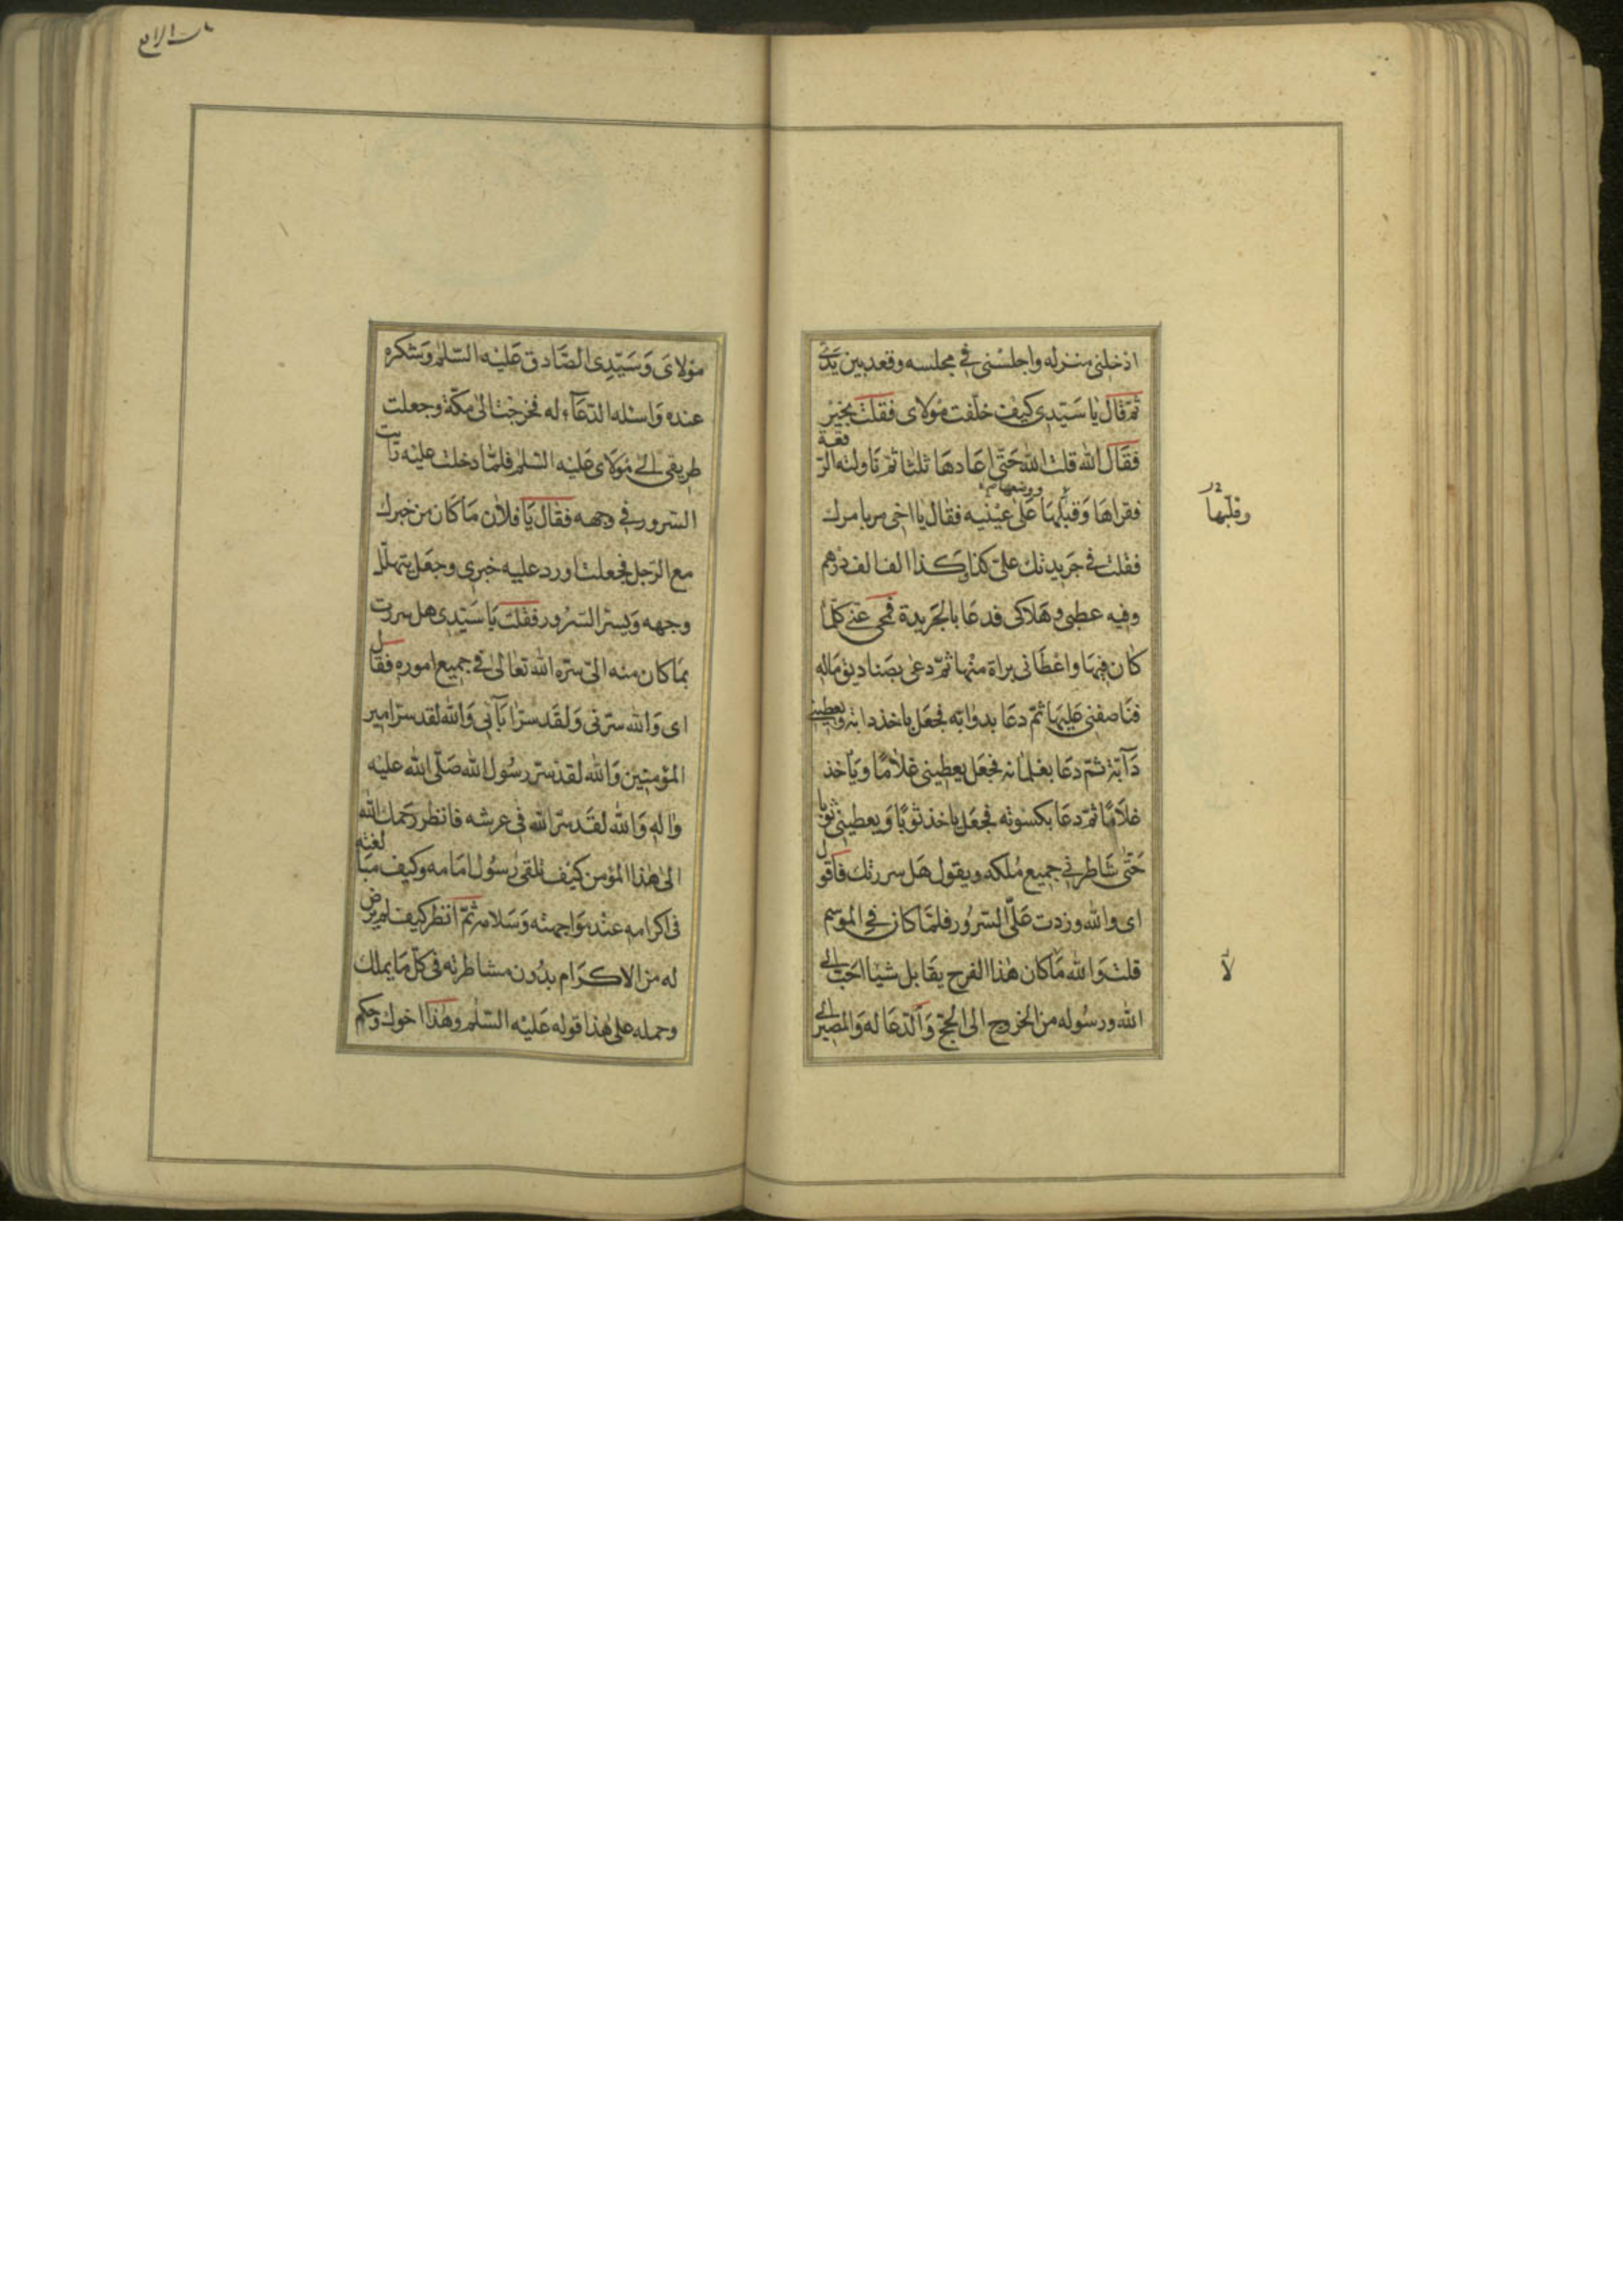 ادخلنى منزله واجلسنى فى مجلسه وقعد بين يدى
ثم قال يا سيدى كيف خلفت مولاى فقلت بخير
فقال الله قلت الله حتى اعادها ثلثا ثم ناولته الرقعة
فقراها وقبلها ووضعها على عينيه فقال يا اخى مر بامرك
وقبلها
فقلت فى جريدتك على كذا وكذا الف الف درهم
وفيه عطبى وهلاكى فدعا بالجريدة فمحى عنى كلما
كان فيها واعطانى براة منها ثم دعى بصناديق ماله
فناصفنى عليها ثم دعا بدوابه فجعل ياخذ دابة ويعطينى
دآبة ثم دعا بغلمانه فجعل يعطينى غلاما وياخذ
غلاما ثم دعا بكسوته فجعل ياخذ ثوبا ويعطينى ثوبا
حتى شاطر فى جميع ملكه ويقول هل سررتك فاقول
اى والله وزدت على السرور فلما كان فى الموسم
قلت والله ما كان هذا الفرح يقابل شيا احب الى
لا
الله ورسوله من الخروج الى الحج والدعا له والمصير الى
مولاى وسيدى الصادق عليه السلم وشكره
عنده واسئله الدعآء له فخرجت الى مكة وجعلت
طريقى الى مولاى عليه السلم فلما دخلت عليه رايت
السرور فى وجهه فقال يا فلان ما كان من خبرك
مع الرجل فجعلت اورد عليه خبرى وجعل يتهلل
وجهه ويسر السرور فقلت يا سيدى هل سررت
بما كان منه الى سره الله تعالى فى جميع اموره فقال
اى والله سرنى ولقد سر ابآئى والله لقد سر امير
المؤمنين والله لقد سر رسول الله صلى الله عليه
واله والله لقد سر الله فى عرشه فانظر رحمك الله
الى هذا المؤمن كيف تلقى رسول امامه وكيف مبالغته
فى اكرامه عند مواجهته وسلامه ثم انظر كيف لم يرض
له من الاكرام بدون مشاطرته فى كل ما يملك
وحمله على هذا قوله عليه السلم وهذا اخوك وحكم